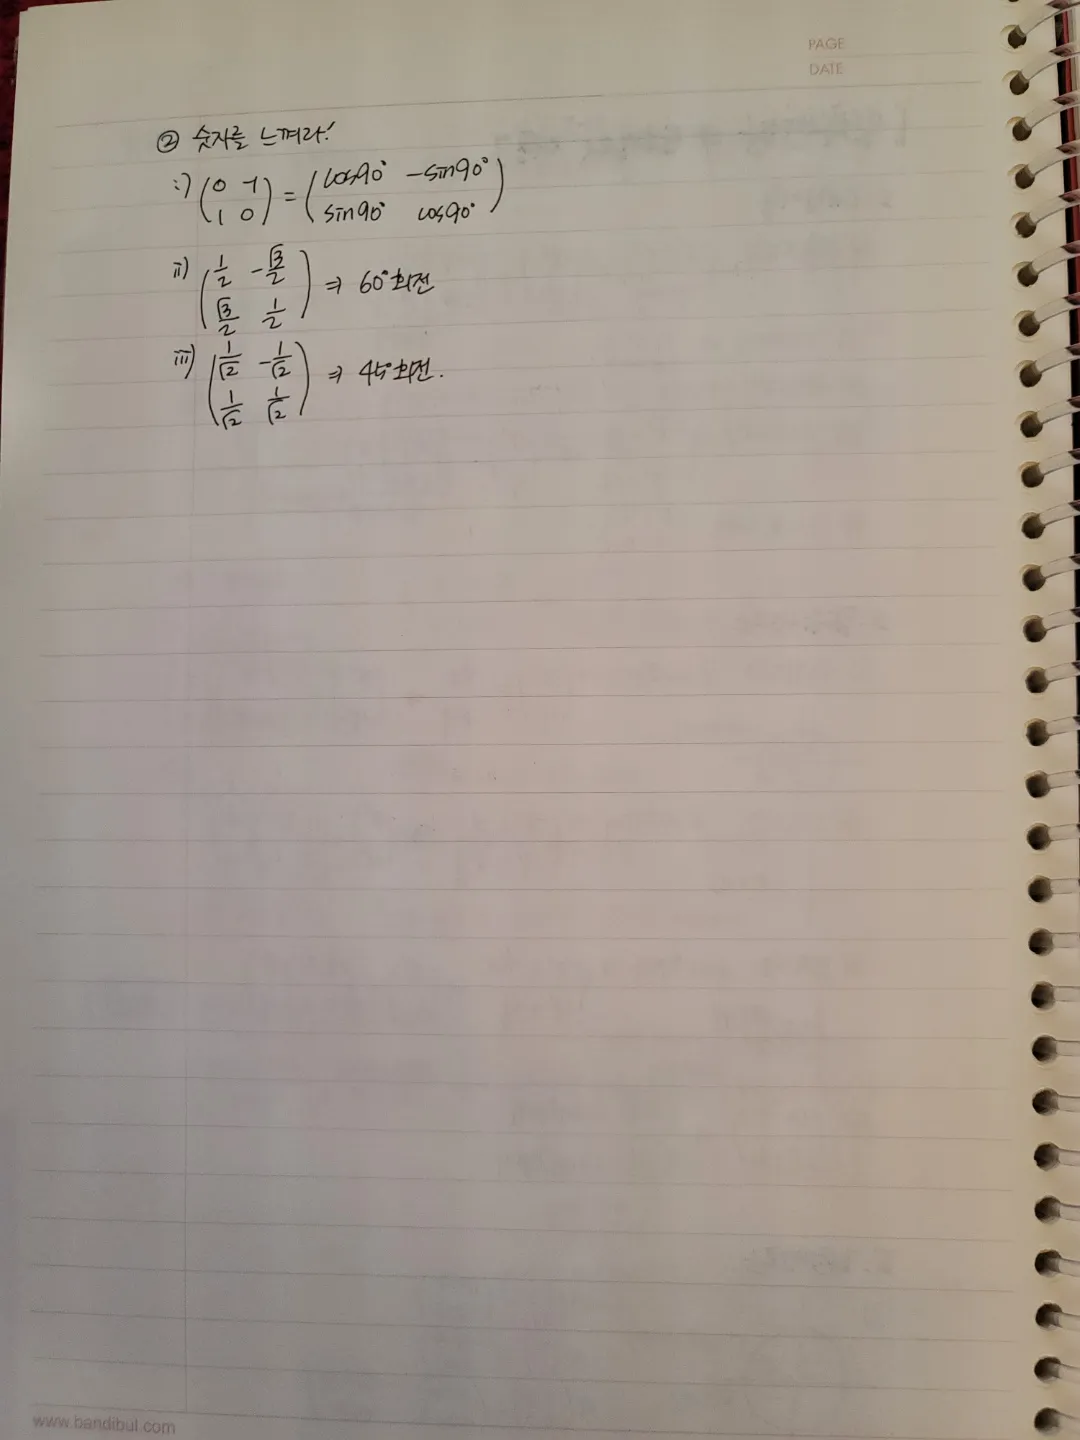 PAGE
DATE
②숫자를 느껴라!
i) (0 -1
1 0) = (cos90° -sin90°
sin90° cos90°)
ii) (1/2 -√3/2
√3/2 1/2) ⇒ 60°회전
iii) (1/√2 -1/√2
1/√2 1/√2) ⇒ 45°회전.
www.bandibul.com